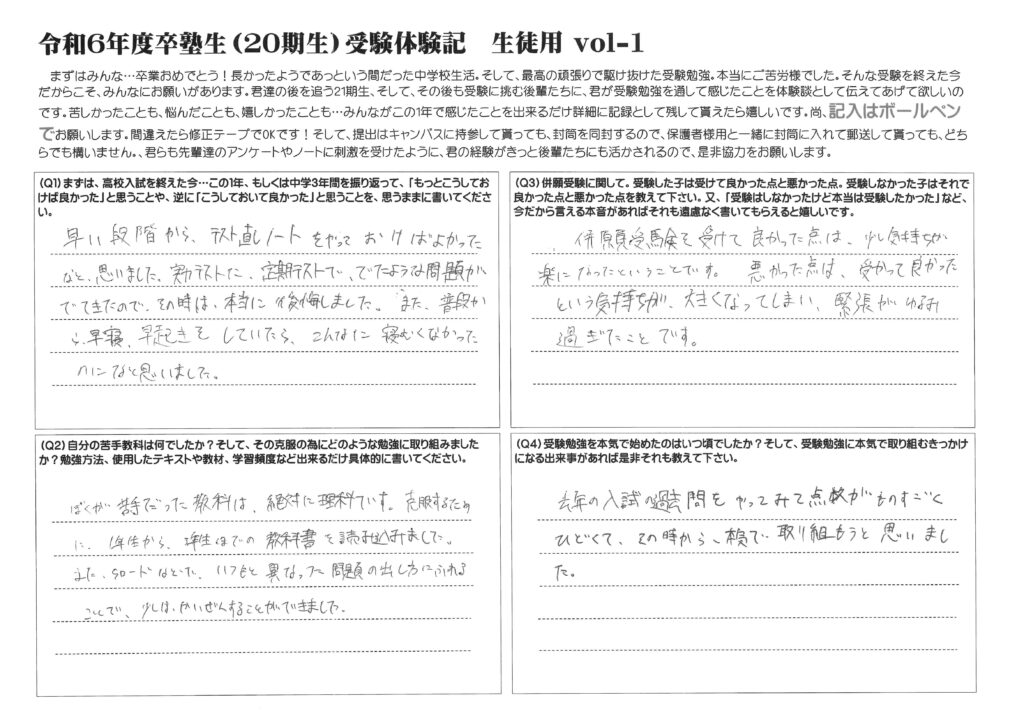 令和6年度卒塾生(20期生)受験体験記 生徒用 vol-1
まずはみんな…卒業おめでとう!長かったようであっという間だった中学校生活。そして、最高の頑張りで駆け抜けた受験勉強。本当にご苦労様でした。そんな受験を終えた今
だからこそ、みんなにお願いがあります。君達の後を追う21期生、そして、その後も受験に挑む後輩たちに、君が受験勉強を通して感じたことを体験談として伝えてあげて欲しいの
です。苦しかったことも、悩んだことも、嬉しかったことも…みんながこの1年で感じたことを出来るだけ詳細に記録として残して貰えたら嬉しいです。尚、記入はボールペン
でお願いします。間違えたら修正テープでOKです!そして、提出はキャンパスに持参して貰っても、封筒を同封するので、保護者様用と一緒に封筒に入れて郵送して貰っても、どち
らでも構いません。、君らも先輩達のアンケートやノートに刺激を受けたように、君の経験がきっと後輩たちにも活かされるので、是非協力をお願いします。
(Q1)まずは、高校入試を終えた今…この1年、もしくは中学3年間を振り返って、「もっとこうしてお
けば良かった」と思うことや、逆に「こうしておいて良かった」と思うことを、思うままに書いてくださ
い。
早い段階から、テスト直しノートをやっておけばよかった
なと、思いました。実力テストに、定期テストで、でたような問題が
でてきたので、その時は、本当に後悔しました。また、普段か
ら、早寝、早起きをしていたら、こんなに寝むくなかった
のになと思いました。
(Q2)自分の苦手教科は何でしたか?そして、その克服の為にどのような勉強に取り組みました
か?勉強方法、使用したテキストや教材、学習頻度など出来るだけ具体的に書いてください。
ぼくが苦手だった教科は、絶対に理科です。克服するため
に、1年生から、3年生までの教科書を読み込みました。
また、タロードなどで、いつもと異なった問題の出し方にふれる
ことで、少しは、かいぜんすることができました。
(Q3)併願受験に関して。受験した子は受けて良かった点と悪かった点。受験しなかった子はそれで
良かった点と悪かった点を教えて下さい。又、「受験はしなかったけど本当は受験したかった」など、
今だから言える本音があればそれも遠慮なく書いてもらえると嬉しいです。
併願受験を受けて良かった点は、少し気持ちが
楽になったということです。 悪かった点は、受かって良かった
という気持ちが、大きくなってしまい、緊張がゆるみ
過ぎたことです。
(Q4)受験勉強を本気で始めたのはいつ頃でしたか?そして、受験勉強に本気で取り組むきっかけ
になる出来事があれば是非それも教えて下さい。
去年の入試の過去問をやってみて点数がものすごく
ひどくて、その時から、本気で取り組もうと思いまし
た。